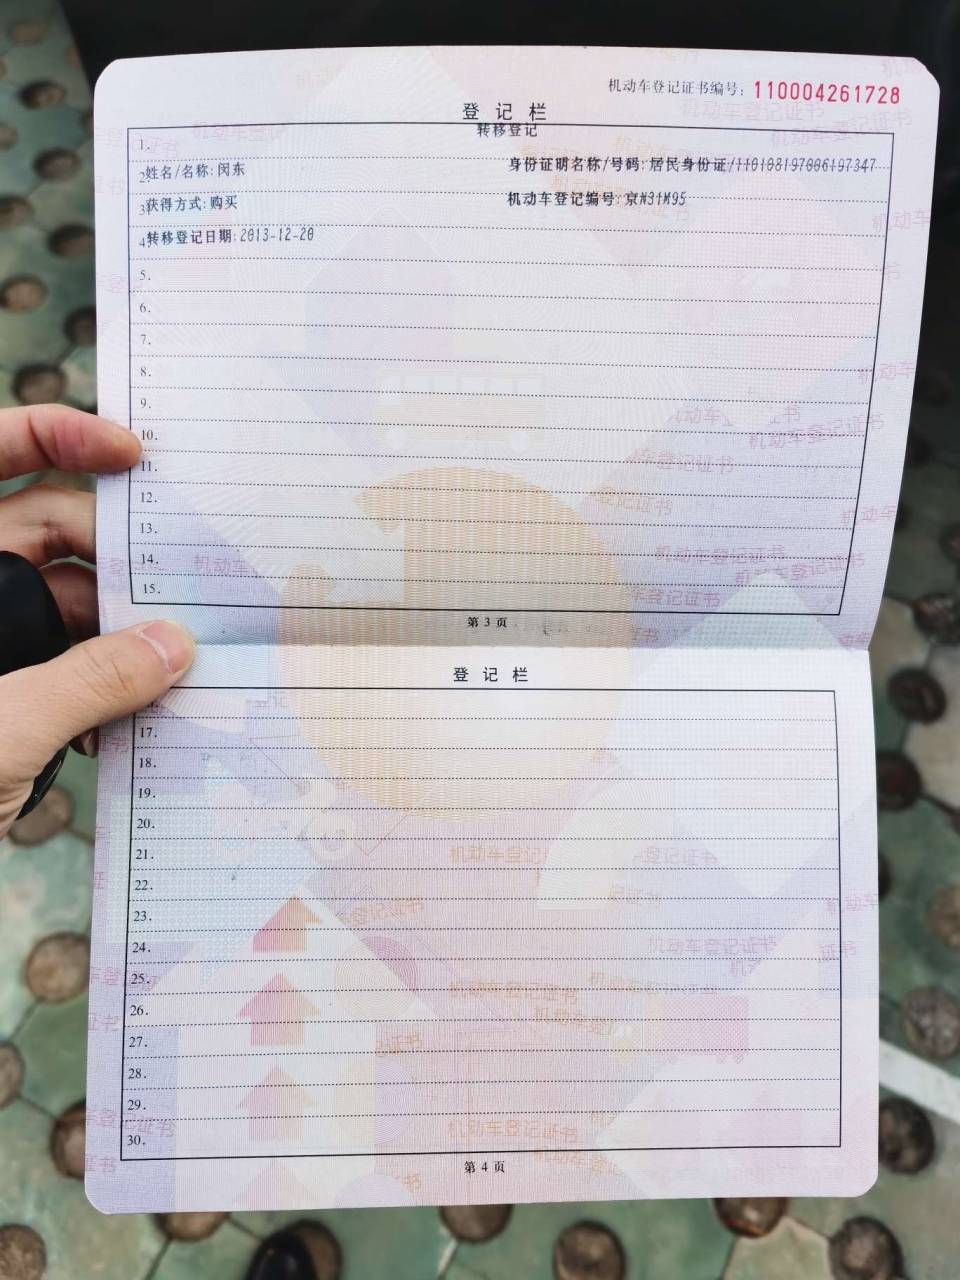 机动车登记证书编号：110004261728
登 记 栏
转移登记
1.
2. 姓名/名称:闵东 身份证明名称/号码:居民身份证/110108197006197347
3. 获得方式:购买 机动车登记编号:京N31M95
4. 转移登记日期:2013-12-20
5.
6.
7.
8.
9.
10.
11.
12.
13.
14.
15.
第 3 页
登 记 栏
17.
18.
19.
20.
21.
22.
23.
24.
25.
26.
27.
28.
29.
30.
第 4 页